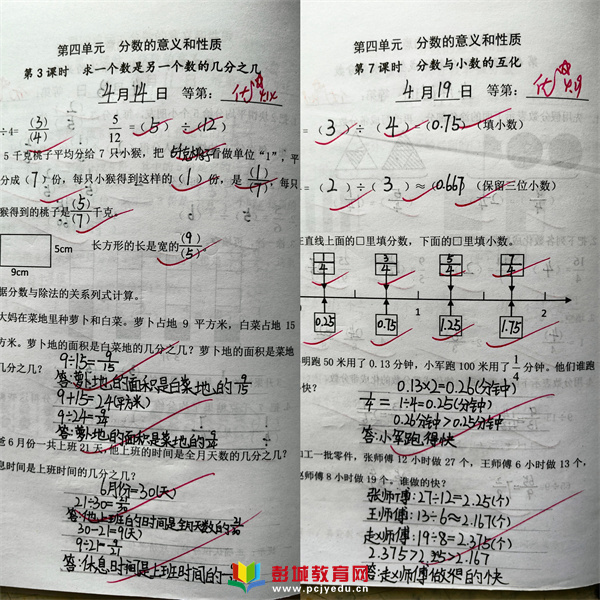 第四单元 分数的意义和性质
第3课时 求一个数是另一个数的几分之几
4月14日 等第: 优
÷4=(3)/(4) 5/12=(5)÷(12)
5千克桃子平均分给7只小猴,把 5千克桃子 看做单位“1”,平
分成(7)份,每只小猴得到这样的(1)份,是(1)/(7),每只
猴得到的桃子是(5)/(7)千克。
5cm
长方形的长是宽的(9)/(5)。
9cm
据分数与除法的关系列式计算。
大妈在菜地里种萝卜和白菜。萝卜占地 9 平方米,白菜占地 15
方米。萝卜地的面积是白菜地的几分之几?萝卜地的面积是菜地
几分之几?
9÷15=9/15
答:萝卜地的面积是白菜地的9/15
9+15=24(平方米)
9÷24=9/24
答:萝卜地的面积是菜地的9/24
爸 6 月份一共上班 21 天,他上班的时间是全月天数的几分之几?
息时间是上班时间的几分之几?
6月份=30(天)
21÷30=21/30
答:他上班的时间是全月天数的21/30
30-21=9(天)
9÷21=9/21
答:休息时间是上班时间的
第四单元 分数的意义和性质
第7课时 分数与小数的互化
4月19日 等第: 优 4.19
=(3)÷(4)=(0.75)(填小数)
=(2)÷(3)≈(0.667)(保留三位小数)
直线上面的□里填分数,下面的□里填小数。
1/4 3/4 5/4 7/4
1 2
0.25 0.75 1.25 1.75
明跑 50 米用了 0.13 分钟,小军跑 100 米用了 1/4 分钟。他们谁跑
快?
0.13×2=0.26(分钟)
1/4=1÷4=0.25(分钟)
0.26分钟>0.25分钟
答:小军跑得快
工一批零件,张师傅 12 小时做 27 个,王师傅 6 小时做 13 个,
赵师傅 8 小时做 19 个。谁做的快?
张师傅:27÷12=2.25(个)
王师傅:13÷6≈2.167(个)
赵师傅:19÷8=2.375(个)
2.375>2.25>2.167
答:赵师傅做得的快
彭城教育网
www.pcjyedu.cn